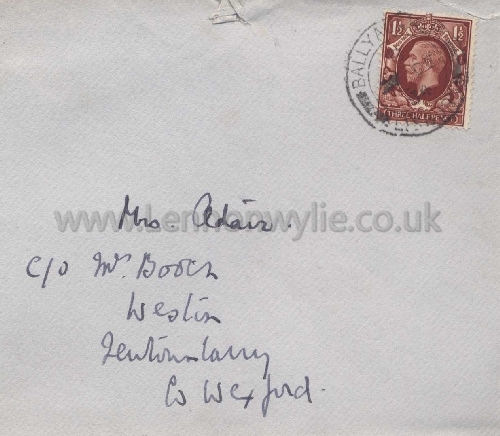 1½ 1½
THREE HALFPENCE
BALLYA
www.Lennonwylie.co.uk
Mrs. Adair.
c/o Mrs Booth
Westin
Newtownbarry
Co Wexford.